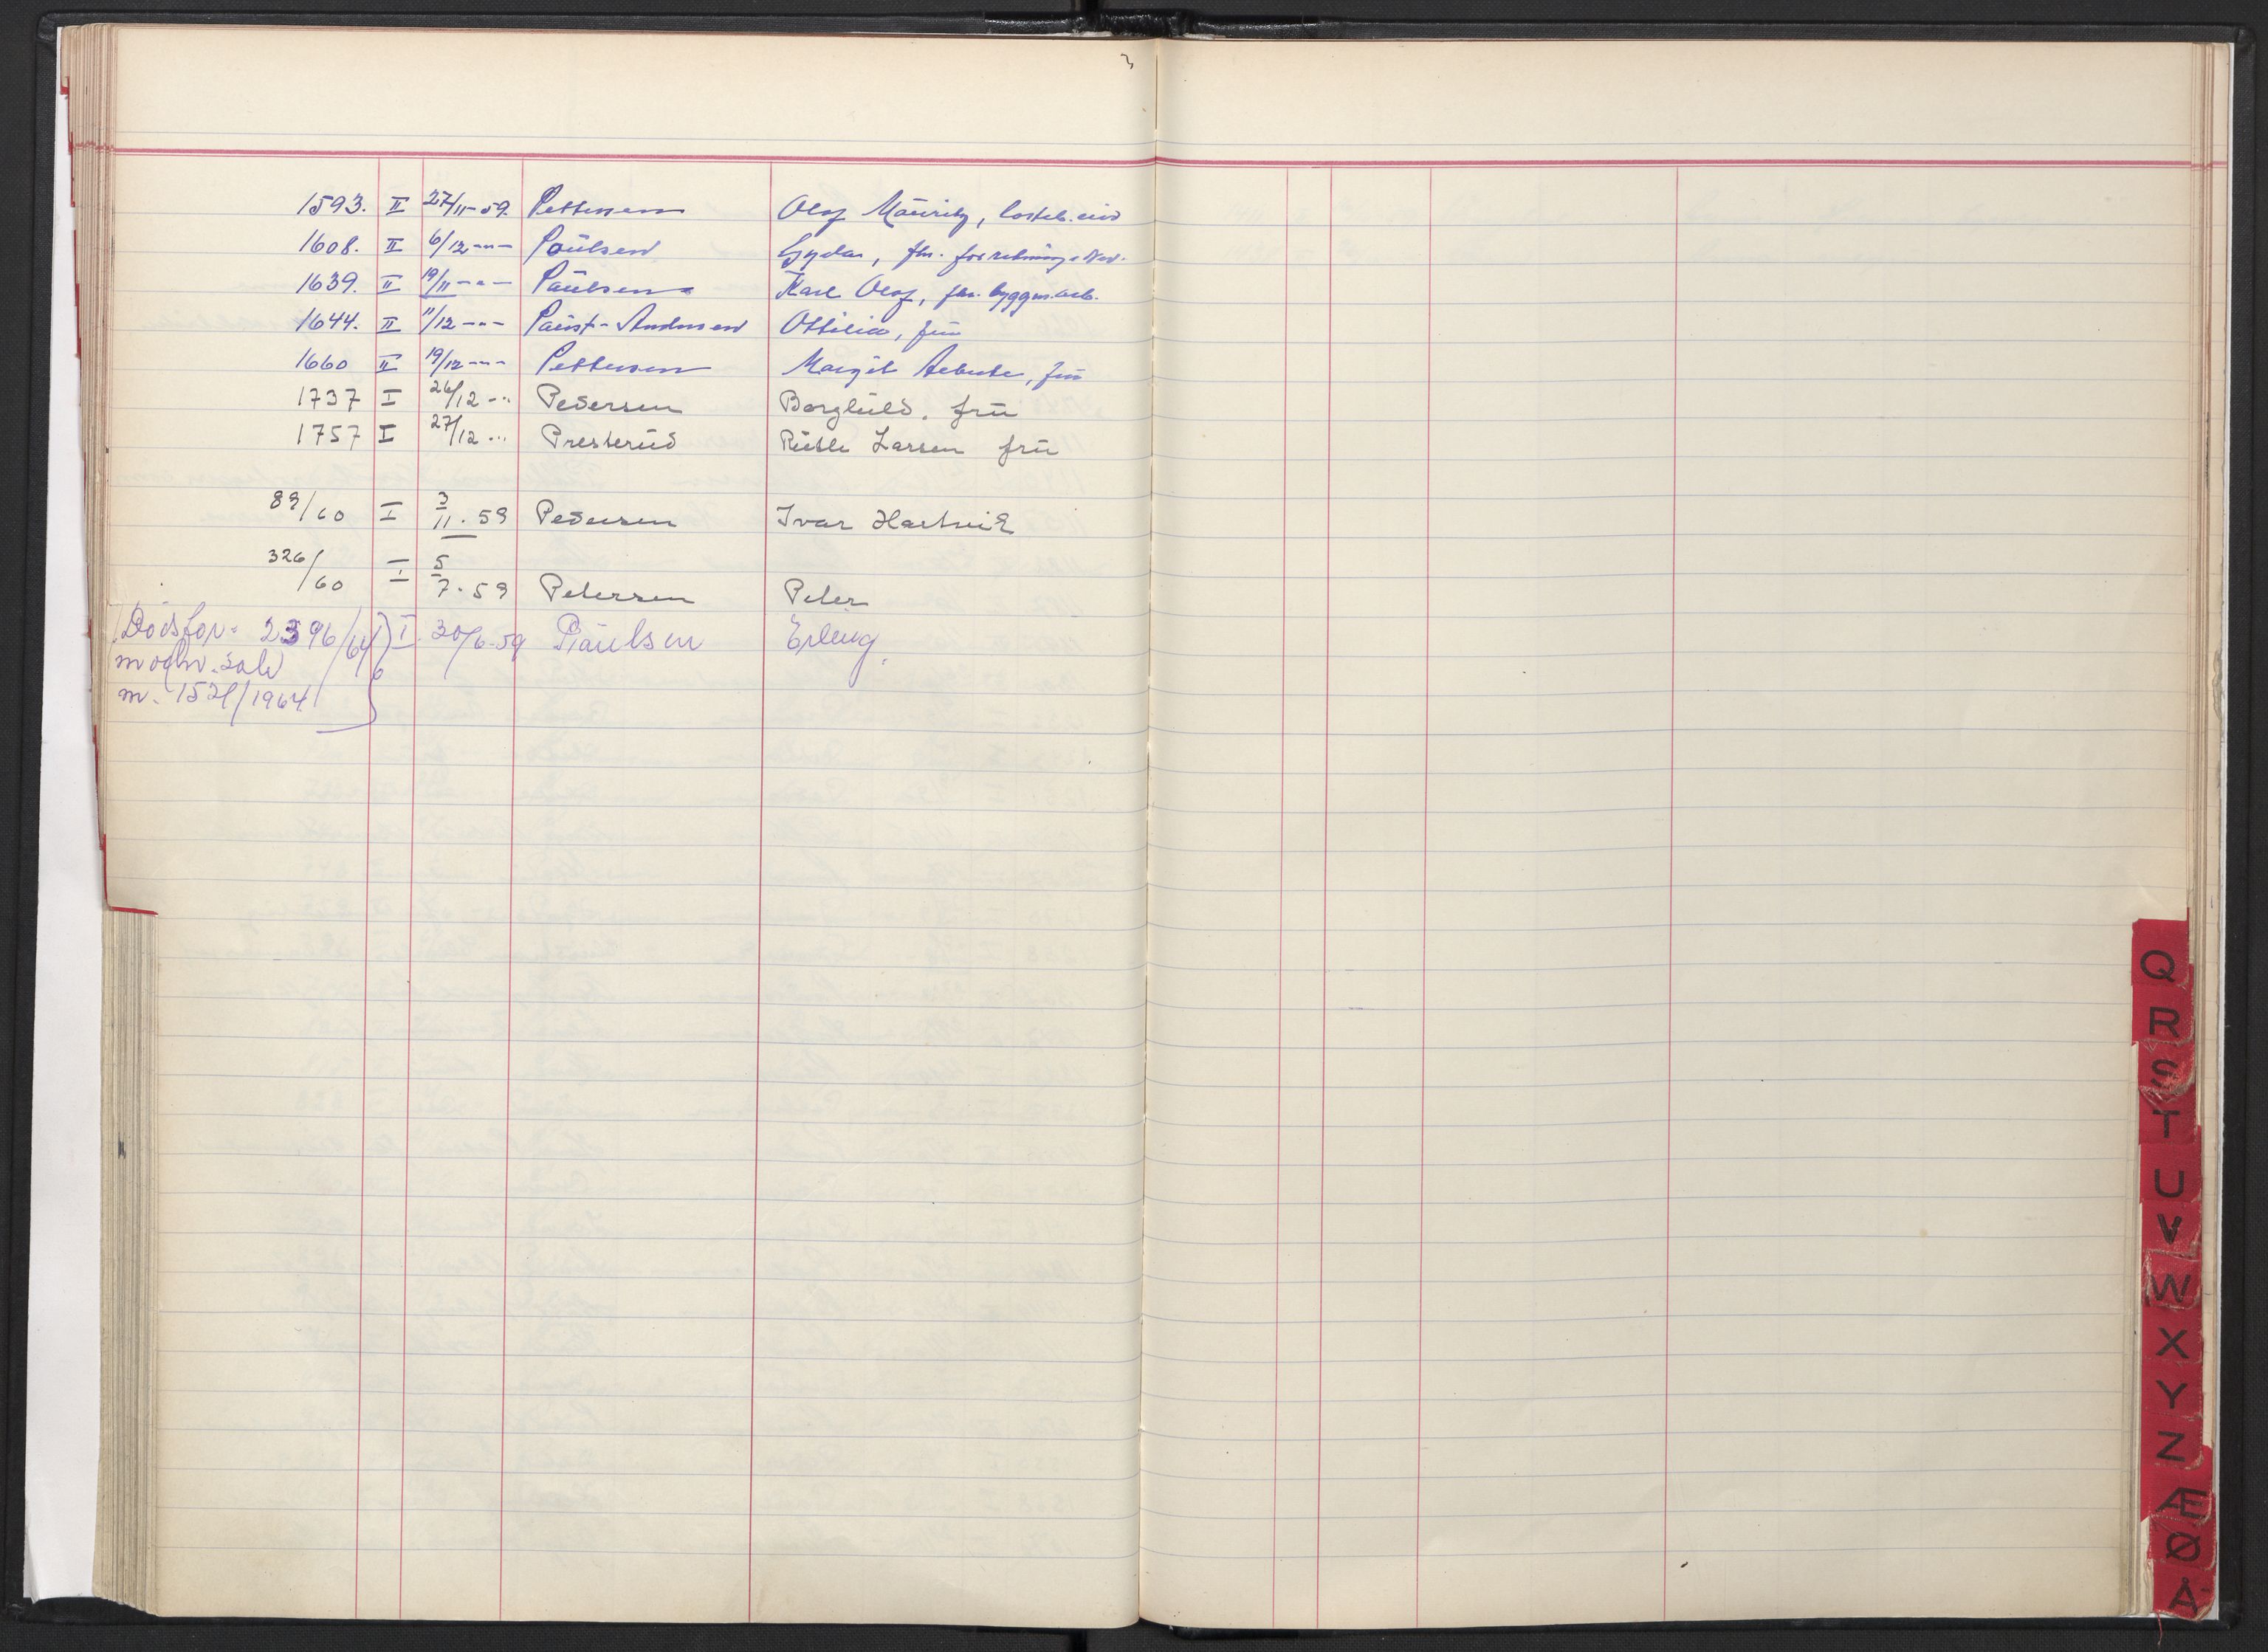 1593. II 27/11-59. Pettersen Olaf Mauritz,
1608. II 6/12 -"- Poulsen Gyda, fhv. forretnings
1639. II 19/11 -"- Paulsen Karl Olaf, fhv. byggn.arb.
1644. II 11/12 -"- Paust-Andersen Ottilia, frü
1660 II 19/12 -"- Pettersen Margit frü
1737 I 26/12 -"- Pedersen Borghild. frü
1757 I 27/12 ... Presterüd Rüth Larsen frü
89/60 I 3/11.59 Pedersen Ivar Hartvik
326/60 I 5/7.59 Petersen Peter
Dødsfor. 2396/64 I. 30/6-59 Paulsen Erling
m
m. 1521/1964
Q
R
S
T
U
V
W
X
Y
Z
Æ
Ø
Å